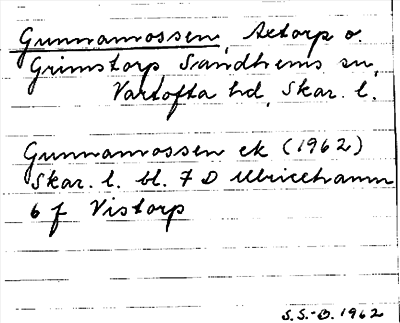 Gunnarmossen, Axtorp o.
Grimstorp Sandhems sn,
Vartofta hd, Skar. l.
Gunnarmossen ek (1962)
Skar. l. bl. 7 D Ulricehamn
6 f Vistorp
S.S.-B. 1962